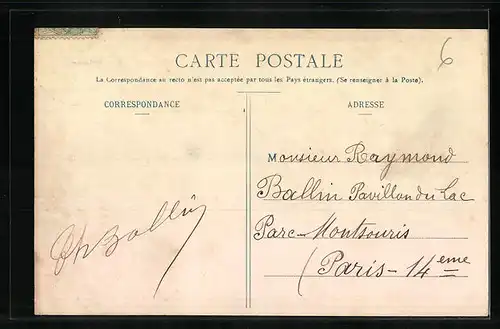 CARTE POSTALE
6
La Correspondance au recto n'est pas acceptée par tous les Pays étrangers. (Se renseigner à la Poste).
CORRESPONDANCE
ADRESSE
Monsieur Raymond
Ballin Pavillon du Lac
Parc-Montsouris
(Paris-14eme
Ballin